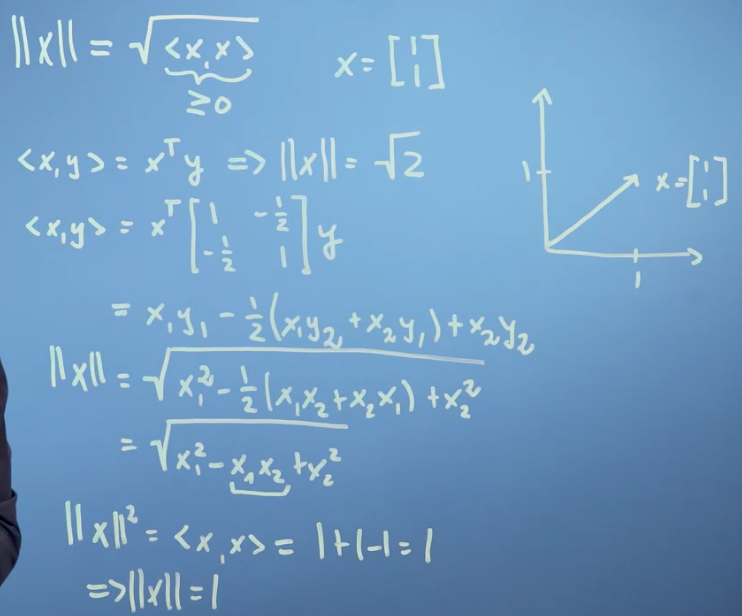 ||x|| = √<x,x>
≥0
x = [1 1]
<x,y> = xᵀy => ||x|| = √2
<x,y> = xᵀ [1 -1/2; -1/2 1] y
= x₁y₁ - 1/2(x₁y₂ + x₂y₁) + x₂y₂
||x|| = √x₁² - 1/2(x₁x₂ + x₂x₁) + x₂²
= √x₁² - x₁x₂ + x₂²
||x||² = <x,x> = 1+1-1 = 1
=> ||x|| = 1
1
x = [1 1]
1